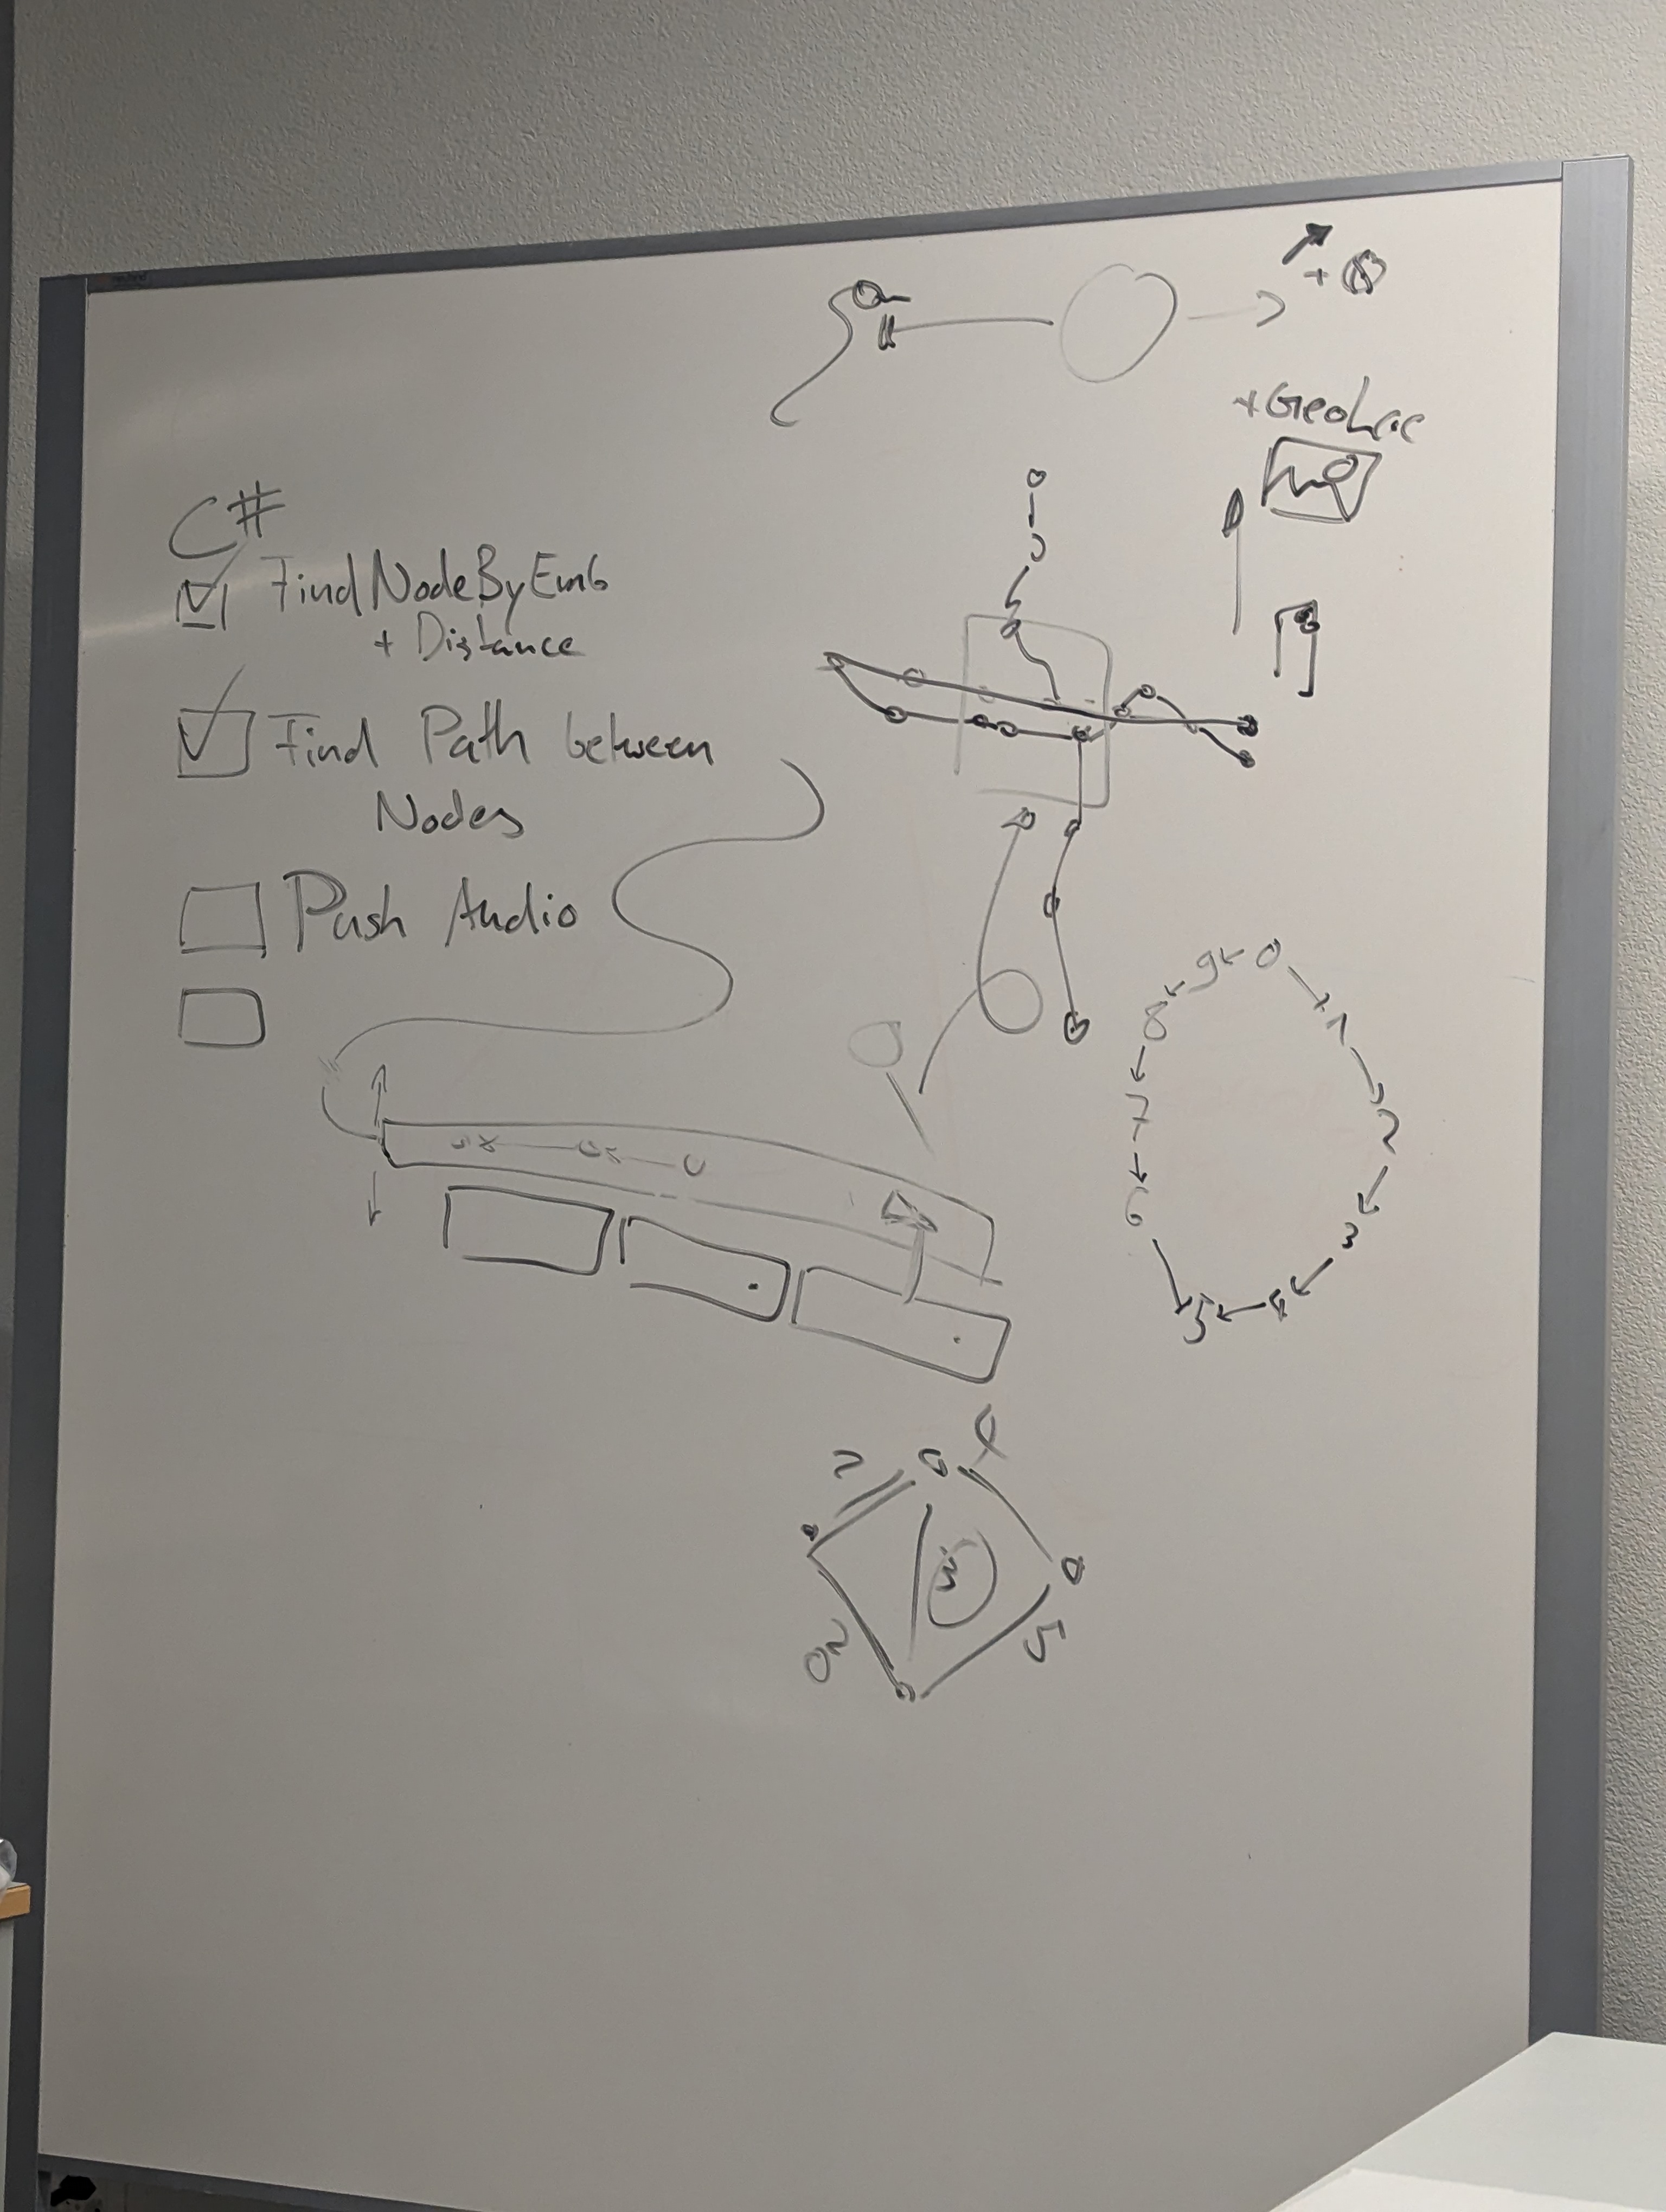 C#
FindNodeByEmb
+ Distance
Find Path between
Nodes
Push Audio
+GeoLoc
0
1
2
3
4
5
6
7
8
9
4
3
5